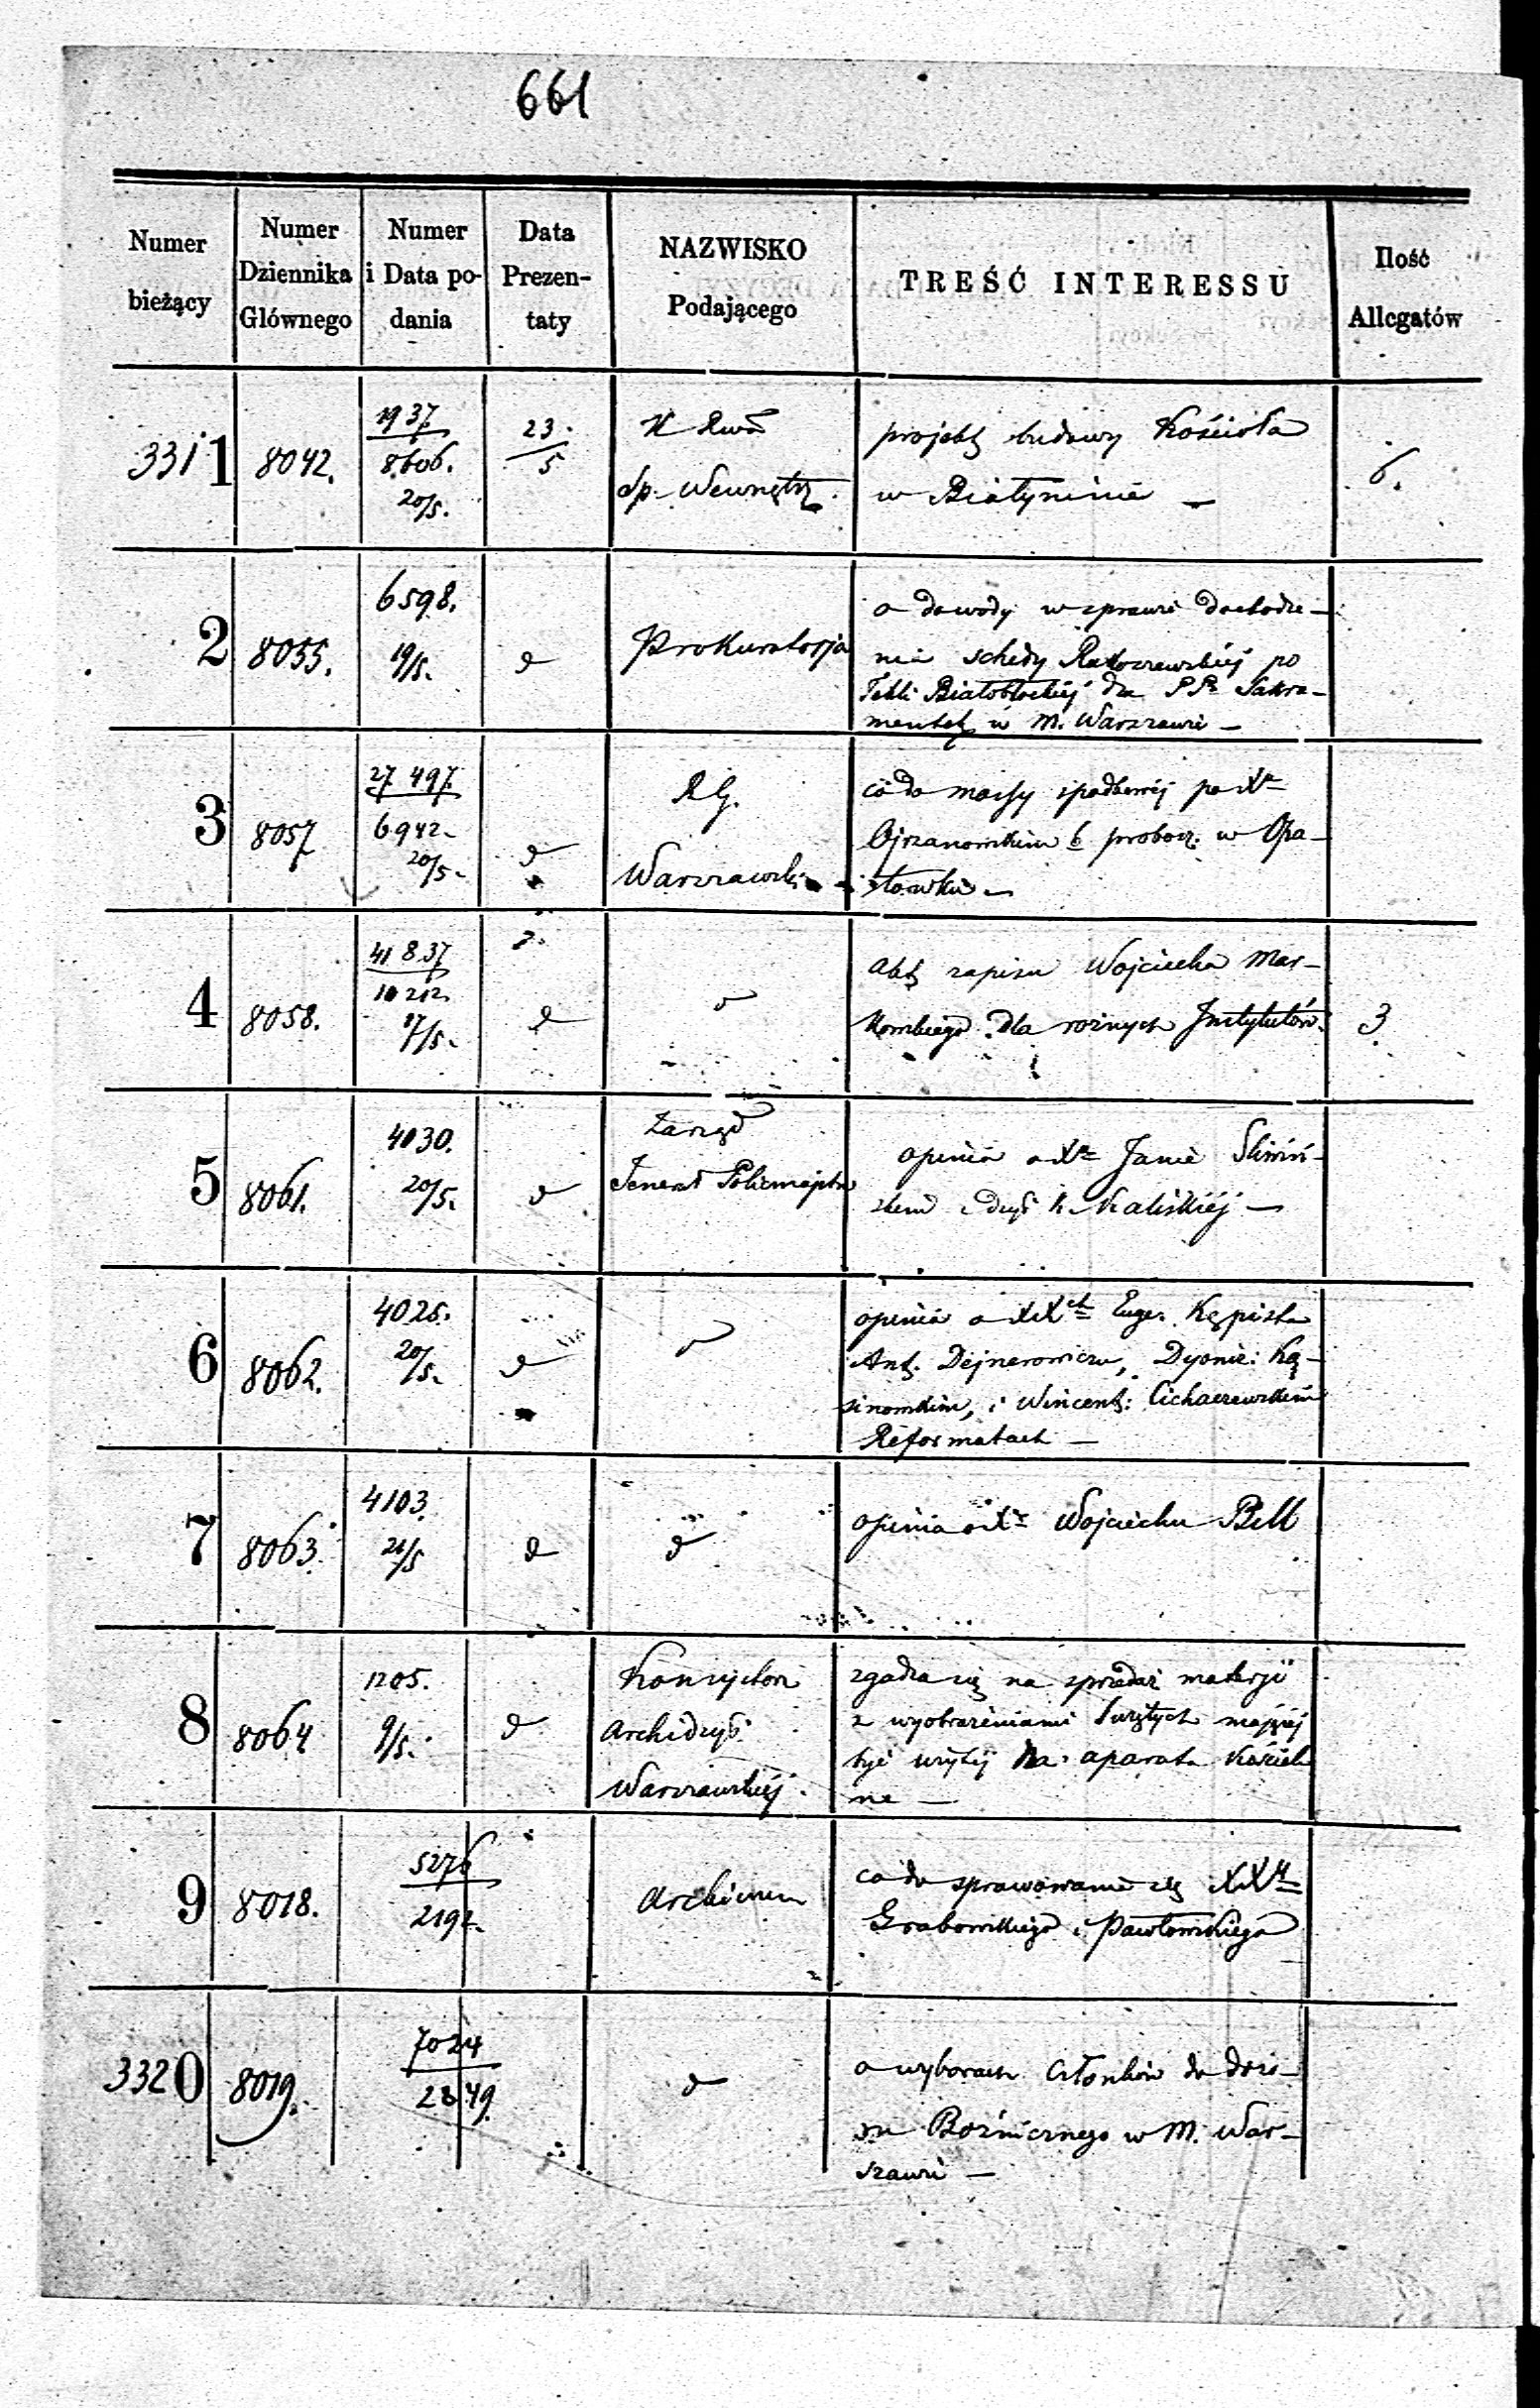 661
Numer bieżący
Numer Dziennika Głównego
Numer i Data podania
Data Prezentaty
NAZWISKO Podającego
TREŚĆ INTERESSU
Ilość Allegatów
3311
8042.
1937.
8606.
20/5.
23.
5
sp. Wewnętrz.
projekt budowy Kościoła
w Białyninie —
6.
2
8055.
6598.
19/5.
d
Prokuratorja
o dowody w sprawie dochodze-
nia schedy po
Tekli Białobłockiej dla PP Sakra-
mentek w M. Warszawie —
3
8057
27 497.
6942.
20/5.
d
R G.
Warszawski
co do massy spadkowej po Xe
b probosz. w Opa-
tówku —
4
8058.
41 837
10 212.
17/5.
d
d
akt zapisu Wojciecha Mar-
kowskiego dla rożnych Instytutów.
3
5
8061.
4030.
20/5.
d
Zarząd
Jenerał Policmajstra
opinia o Xe Janie Śliwiń-
skim z dyec K. Kaliskiéj —
6
8062.
4025.
20/5.
d
d
opinia o XXch Euge.
Ant. Dejnerowiczu, Dyoniz:
i Wincent: Cichaczewskim
Reformatach —
7
8063.
4103.
21/5
d
d
opinia o Xe Wojciechu Bell
8
8064
1205.
9/5.
d
Konsystorz
Archidyec
Warszawskiéj.
zgadza się na sprzedaż materji
z wyobrażeniami Świętych mającéj
być użytéj na aparata Kościel
ne —
9
8018.
5276
2192.
Archiwum
co do sprawowania się XXy
Grabowskiego i Pawłowskiego
3320
8019.
7024
2849.
d
o wyborach Członków do dozo-
ru Bożniczego w M. War-
szawie —